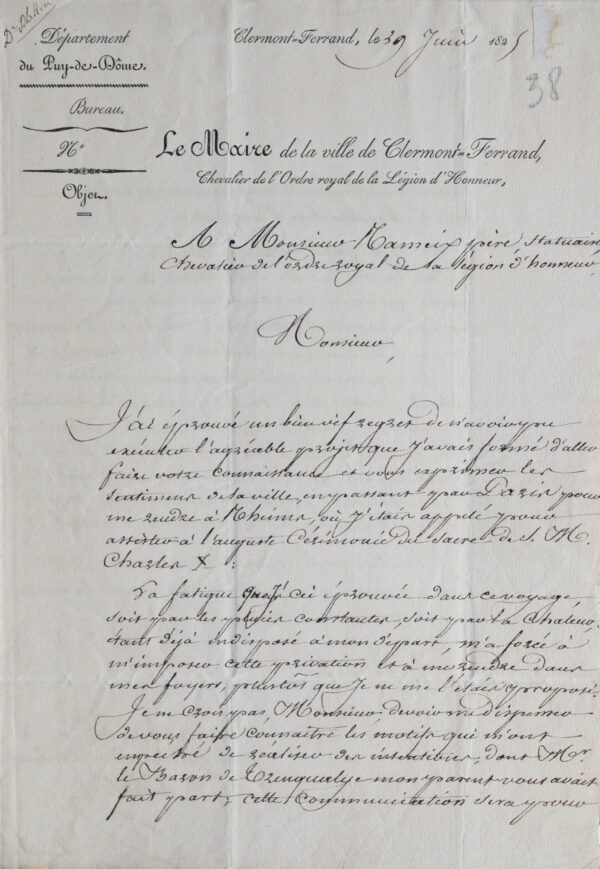 Département
du Puy-de-Dôme.
Bureau.
N.º
Objet.
Clermont-Ferrand, le 29 Juin 1825
38
Le Maire de la ville de Clermont-Ferrand,
Chevalier de l'Ordre royal de la Légion d'Honneur,
A Monsieur Rameix père, Statuaire,
Chevalier de l'ordre royal de la légion d'honneur
Monsieur,
J'ai éprouvé un bien vif regret de n'avoir pu
exécuter l'agréable projet que j'avais formé d'aller
faire votre connaissance et vous exprimer les
sentimens de la ville, en passant par Paris pour
me rendre à Rheims, où j'étais appelé pour
assister à l'auguste Cérémonie du Sacre de S. M.
Charles X :
La fatigue que j'ai éprouvée dans ce voyage
soit par les pluies constantes soit par la chaleur,
étans déjà indisposé à mon départ, m'a forcé à
m'imposer cette privation et à me rendre dans
mes foyers, plustôs que je ne me l'étais proposé.
Je ne crois pas, Monsieur, devoir me dispenser
de vous faire connaître les motifs qui m'ont
empêché de réaliser des intentions, dont Mr.
le Baron de Trenqualye mon parent vous avait
fait part; cette Communication sera pour